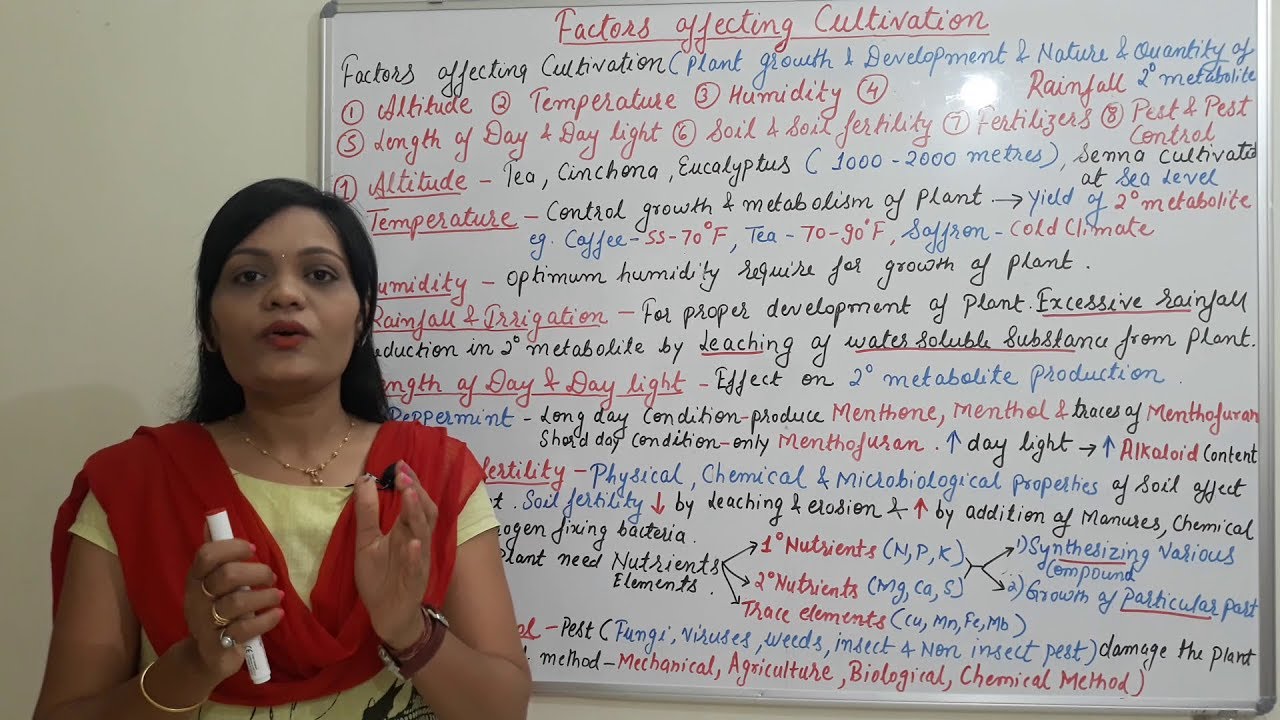 Factors affecting Cultivation
Factors affecting Cultivation (Plant growth & Development & Nature & Quantity of
① Altitude ② Temperature ③ Humidity ④ Rainfall 2° metabolite
⑤ Length of Day & Day light ⑥ Soil & Soil fertility ⑦ Fertilizers ⑧ Pest & Pest
Control
① Altitude – Tea, Cinchona, Eucalyptus (1000 - 2000 metres), Senna cultivated
at Sea Level
Temperature – Control growth & metabolism of Plant → Yield of 2° metabolite
eg. Coffee - 55-70°F, Tea - 70-90°F, Saffron - Cold Climate
umidity – Optimum humidity require for growth of plant.
Rainfall & Irrigation – For proper development of plant. Excessive rainfall
duction in 2° metabolite by Leaching of water soluble Substance from plant.
ength of Day & Day light - Effect on 2° metabolite production.
Peppermint - Long day condition-produce Menthone, Menthol & traces of Menthofuran
condition-only Menthofuran. ↑ day light → ↑ Alkaloid content
fertility – Physical, Chemical & Microbiological properties of soil affect
t. Soil fertility ↓ by leaching & erosion & ↑ by addition of Manures, Chemical
ogen fixing bacteria.
Plant need Nutrients 1° Nutrients (N, P, K) 1) Synthesizing various
Elements. Compound
2° Nutrients (Mg, Ca, S) 2) Growth of Particular part
Trace elements (Cu, Mn, Fe, Mb)
ol - Pest (Fungi, viruses, weeds, insect & Non insect pest) damage the plant
method – Mechanical, Agriculture, Biological, Chemical Method)